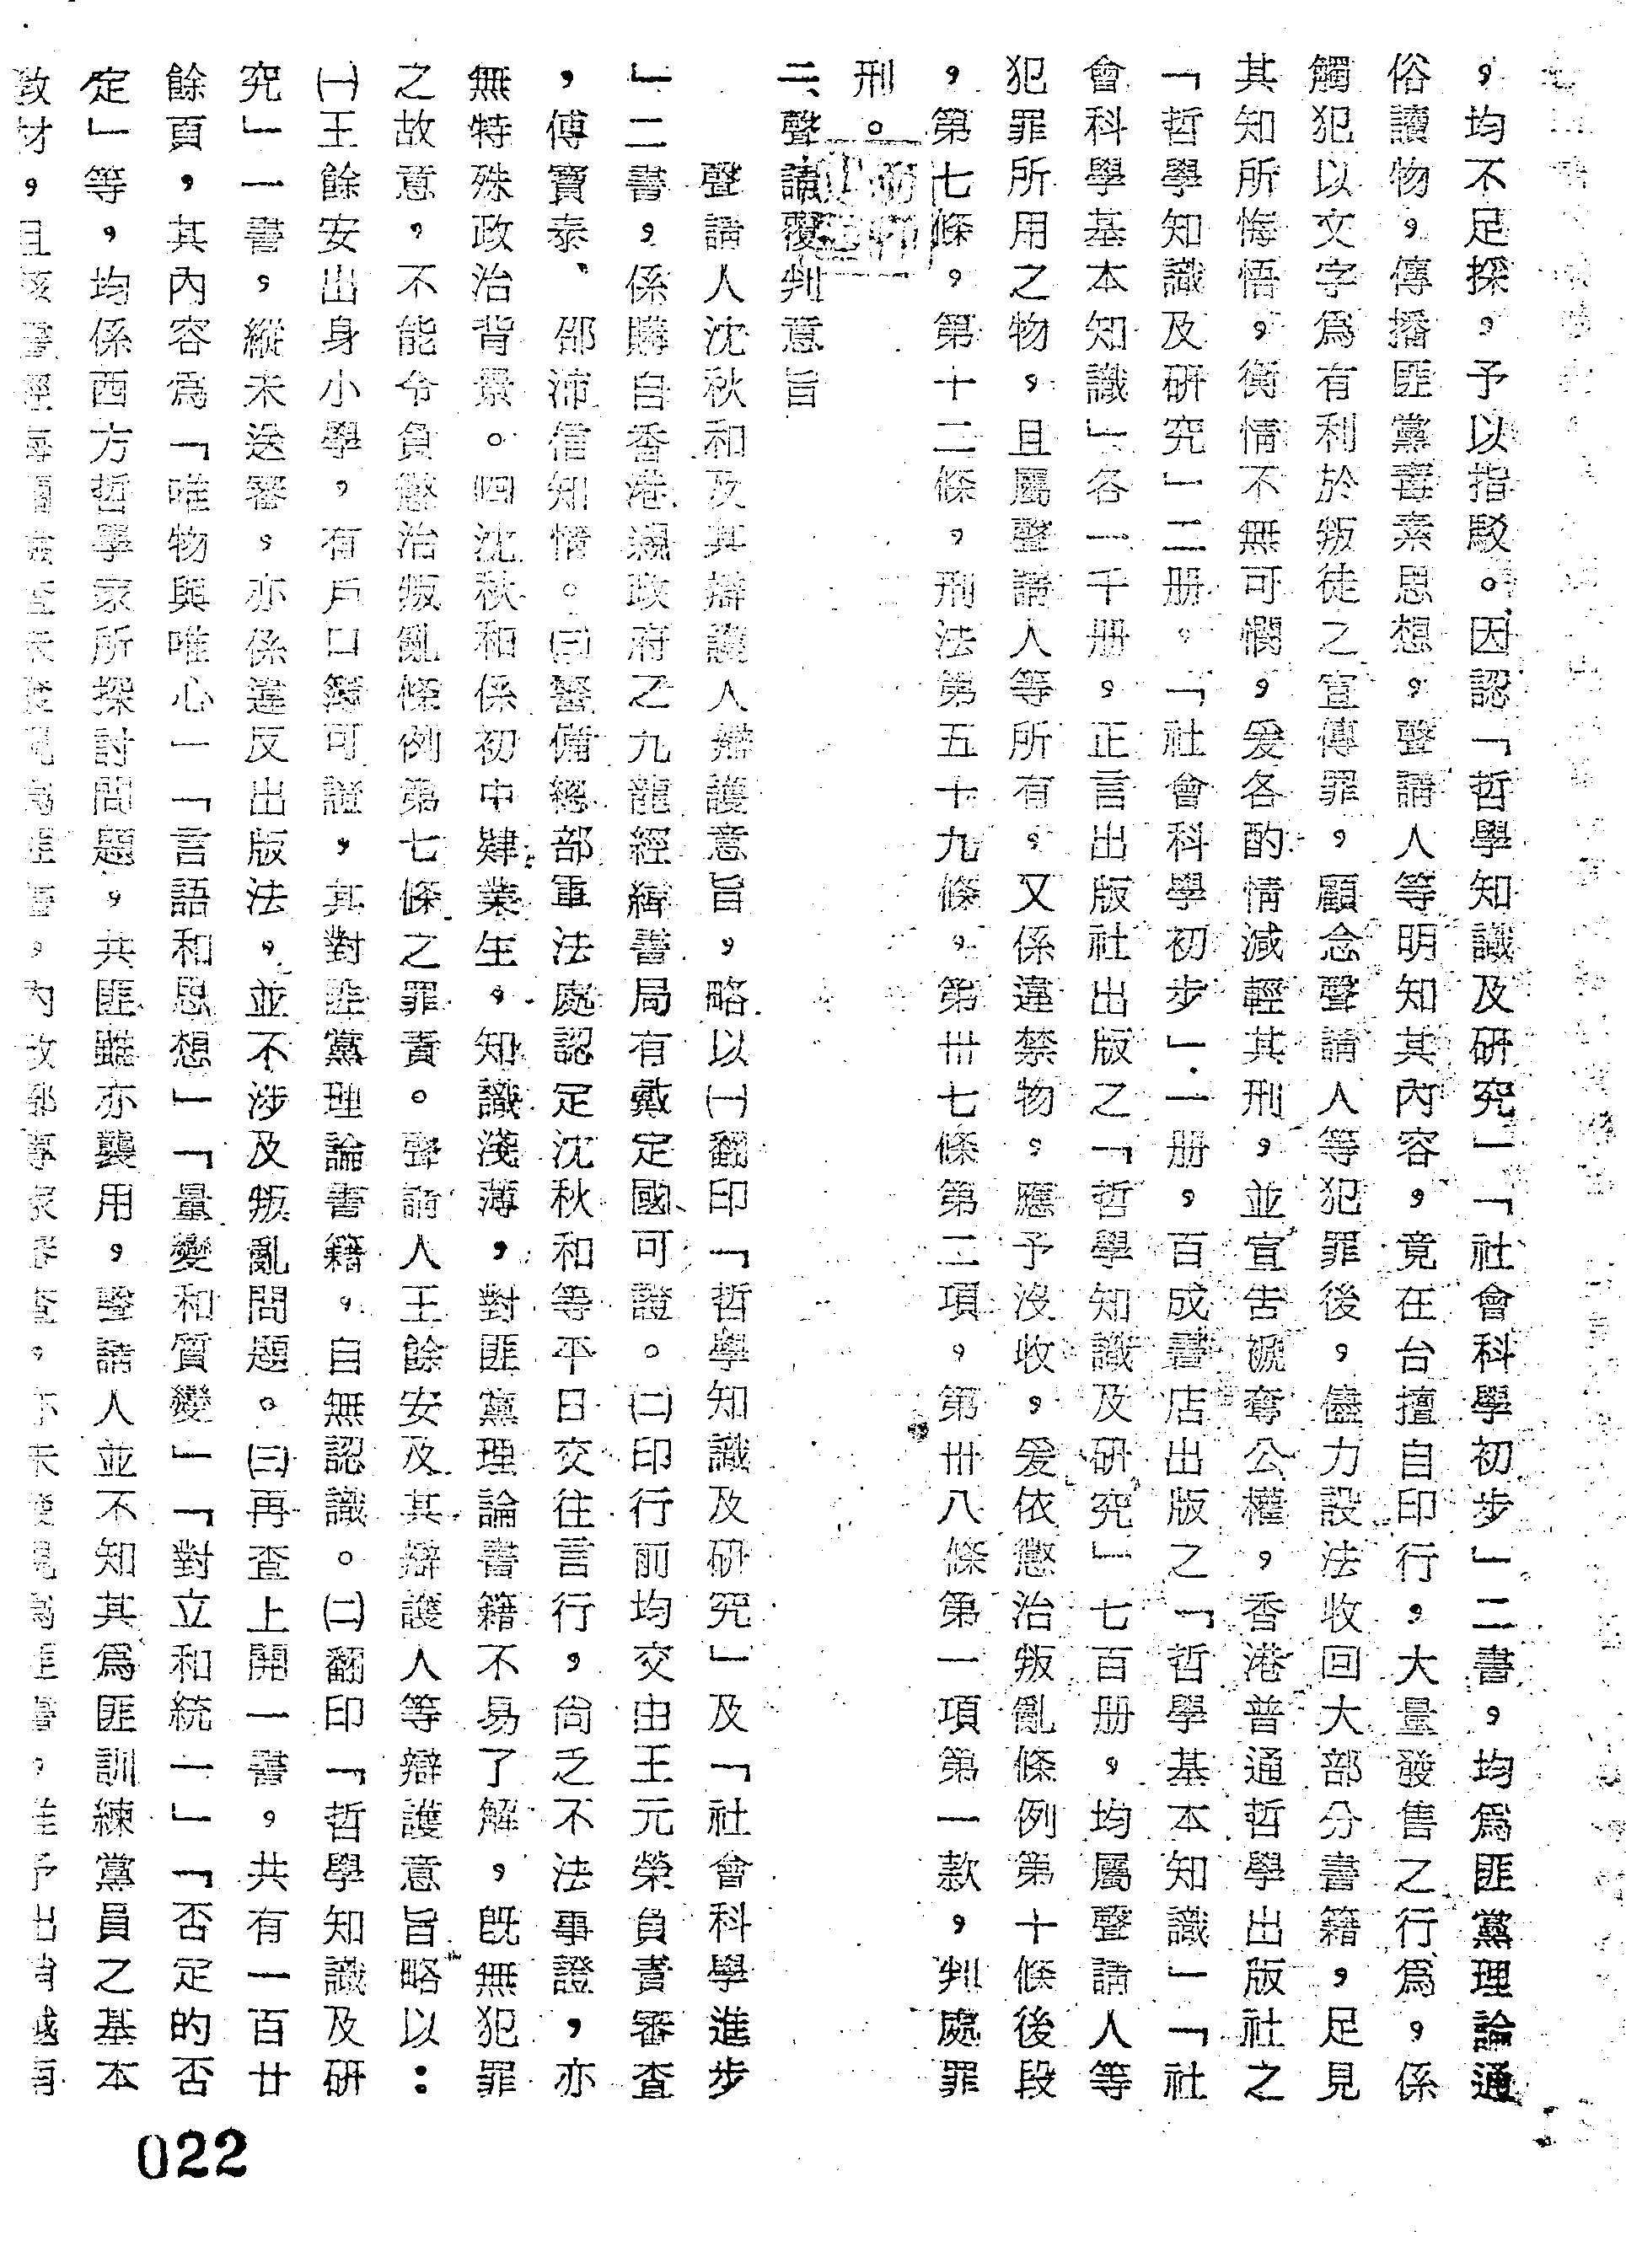 ，均不足採，予以指駁。因認「哲學知識及研究」「社會科學初步」二書，均爲匪黨理論通
俗讀物，傳播匪黨毒素思想，聲請人等明知其內容，竟在台擅自印行，大量發售之行爲，係
觸犯以文字爲有利於叛徒之宣傳罪，顧念聲請人等犯罪後，儘力設法收回大部分書籍，足見
其知所悔悟，衡情不無可憫，爰各酌情減輕其刑，並宣告褫奪公權，香港普通哲學出版社之
「哲學知識及研究」二册，「社會科學初步」一册，百成書店出版之「哲學基本知識」「社
會科學基本知識」各一千册，正言出版社出版之「哲學知識及研究」七百册，均屬聲請人等
犯罪所用之物，且屬聲請人等所有，又係違禁物，應予沒收，爰依懲治叛亂條例第十條後段
，第七條，第十二條，刑法第五十九條，第卅七條第二項，第卅八條第一項第一款，判處罪
刑。
二、聲請覆判意旨
聲請人沈秋和及其辯護人辯護意旨，略以㈠翻印「哲學知識及研究」及「社會科學進步
」二書，係購自香港親政府之九龍經緯書局有戴定國可證。㈡印行前均交由王元榮負責審查
，傅寶泰、邵沛信知情。㈢警備總部軍法處認定沈秋和等平日交往言行，尙乏不法事證，亦
無特殊政治背景。㈣沈秋和係初中肄業生，知識淺薄，對匪黨理論書籍不易了解，旣無犯罪
之故意，不能令負懲治叛亂條例第七條之罪責。聲請人王餘安及其辯護人等辯護意旨略以：
㈠王餘安出身小學，有戶口簿可證，其對匪黨理論書籍，自無認識。㈡翻印「哲學知識及研
究」一書，縱未送審，亦係違反出版法，並不涉及叛亂問題。㈢再查上開一書，共有一百廿
餘頁，其內容爲「唯物與唯心」「言語和思想」「量變和質變」「對立和統一」「否定的否
定」等，均係西方哲學家所探討問題，共匪雖亦襲用，聲請人並不知其爲匪訓練黨員之基本
敎材，且該書經
022